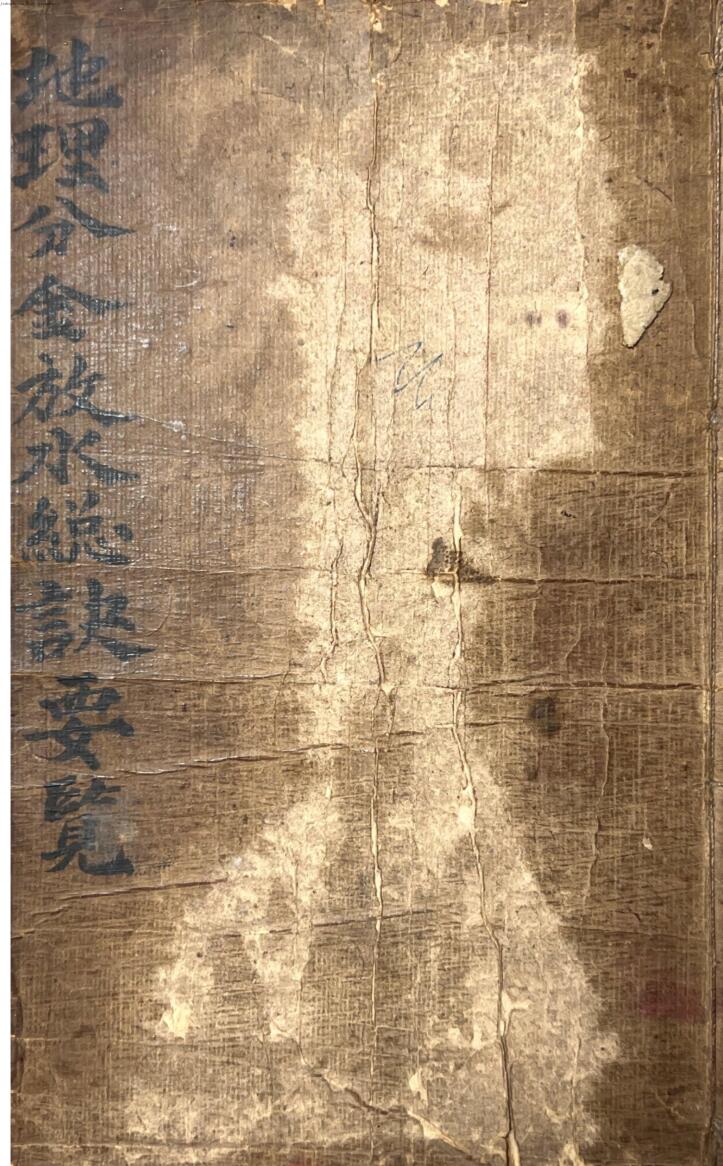 地理分金放水総訣要覧